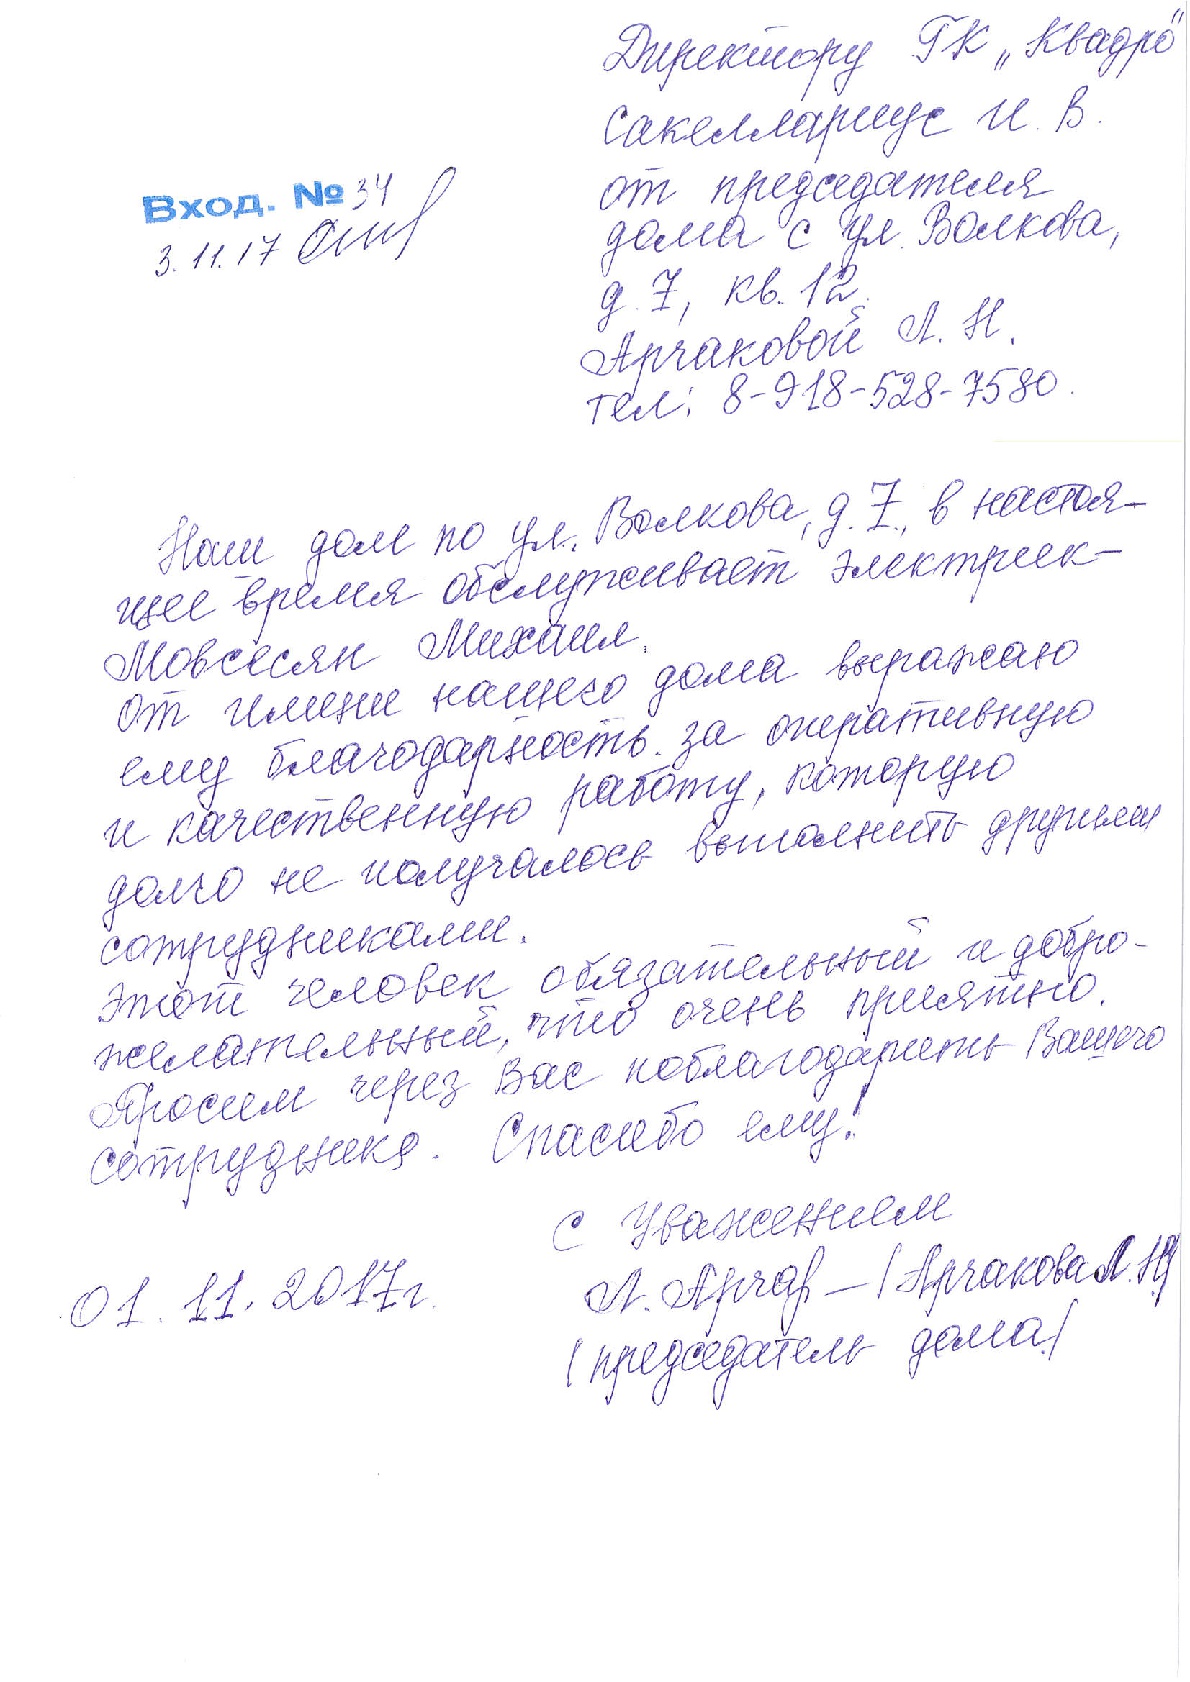 Директору ГК „Квадро"
Сакеллариус И. В.
от председателя
дома с ул. Волкова,
д. 7, кв. 12
Арчаковой Л. Н.
тел: 8-918-528-7580.
Вход. № 34
3.11.17
Наш дом по ул. Волкова, д. 7, в настоя-
щее время обслуживает электрик-
Мовсесян Михаил.
От имени нашего дома выражаю
ему благодарность за оперативную
и качественную работу, которую
долго не получалось выполнить другими
сотрудниками.
Этот человек обязательный и добро-
желательный, что очень приятно.
Просим через Вас поблагодарить Вашего
сотрудника. Спасибо ему!
С Уважением
Л. Арчак — (Арчакова Л. Н.)
(председатель дома)
01.11.2017г.